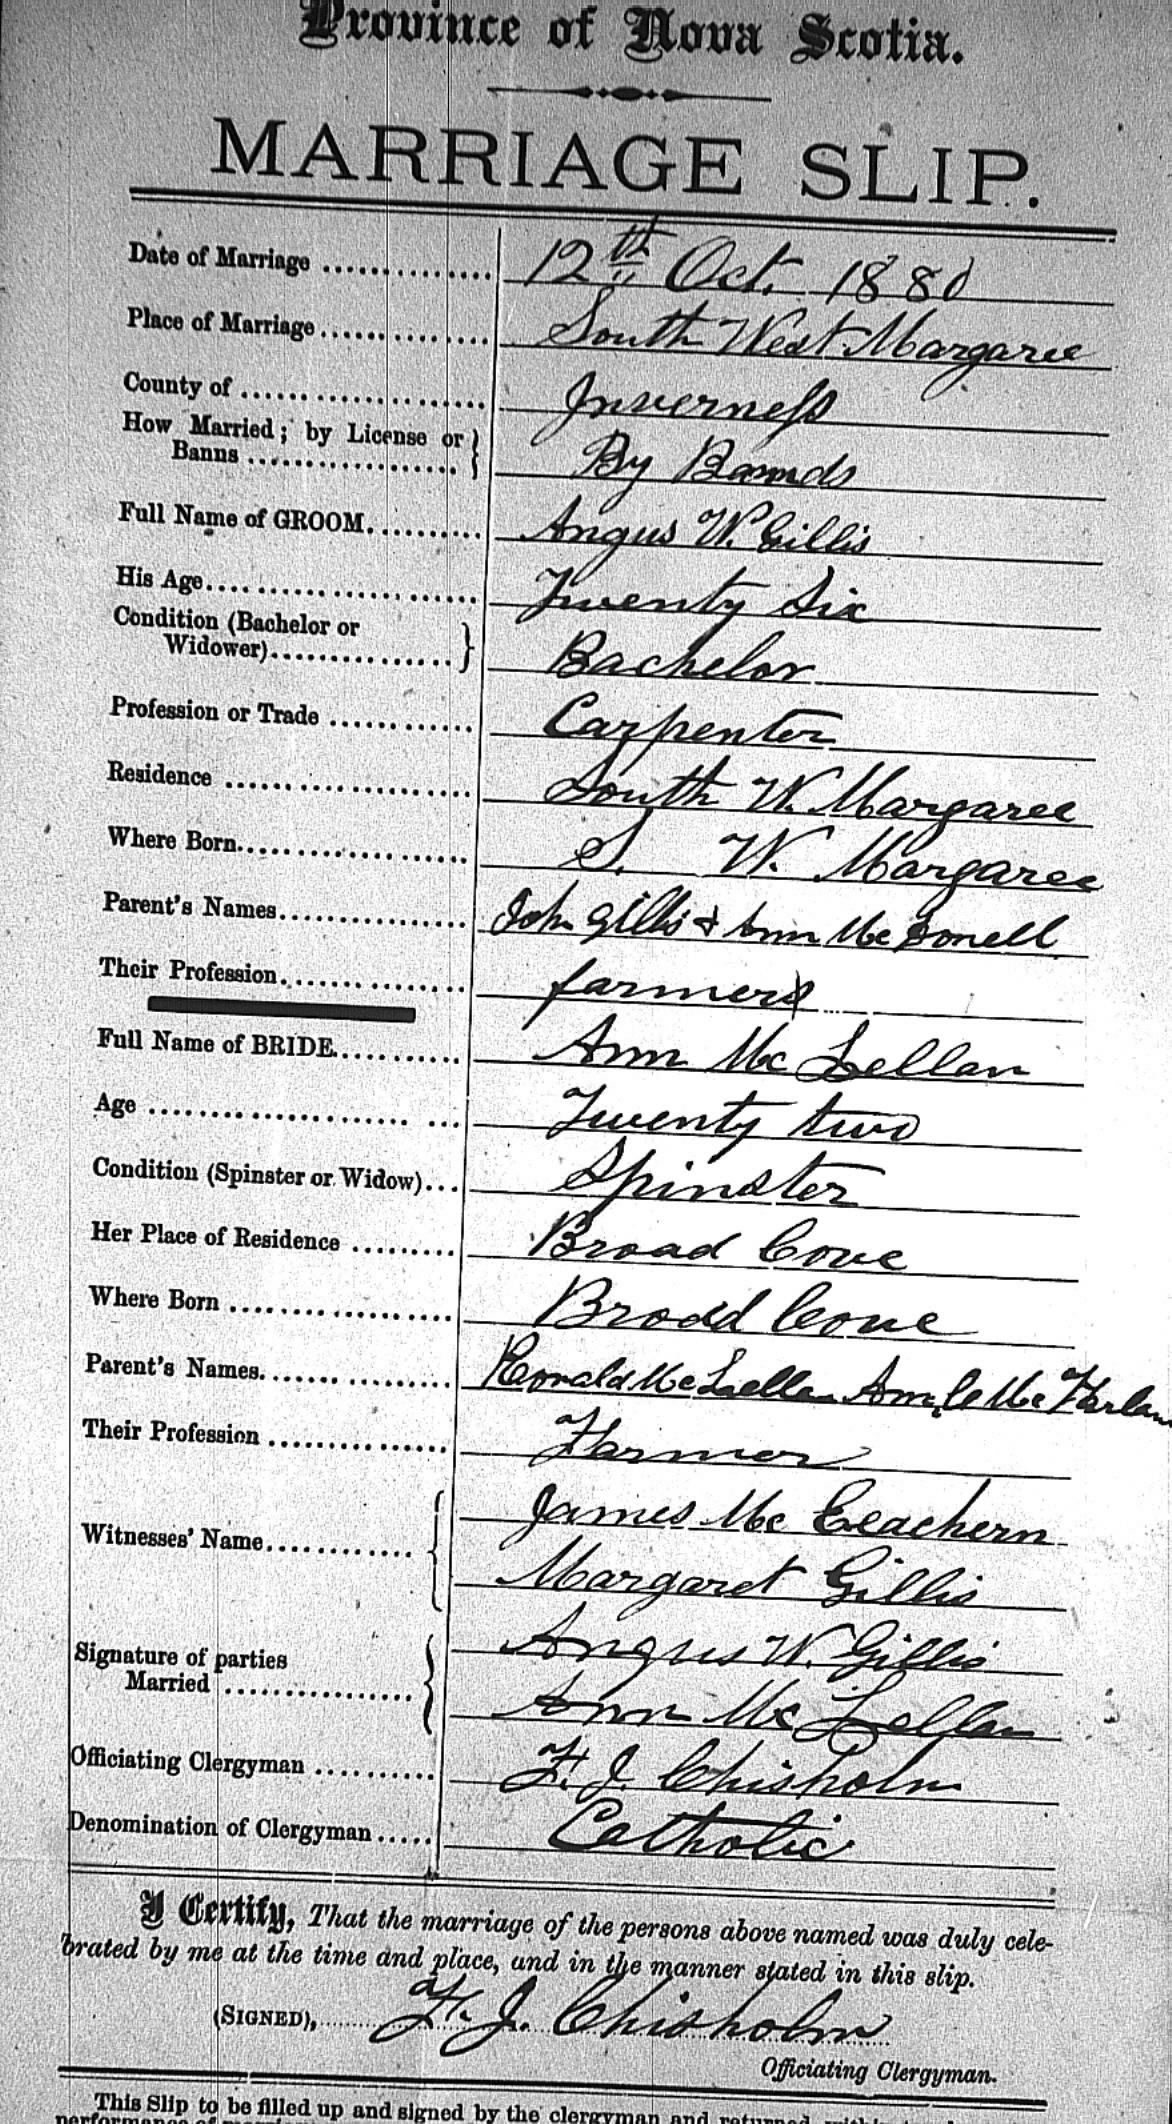 Province of Nova Scotia.
MARRIAGE SLIP.
Date of Marriage 12th Oct. 1880
Place of Marriage South West Margaree
County of Inverness
How Married; by License or
Banns By Bannds
Full Name of GROOM Angus W. Gillis
His Age Twenty Six
Condition (Bachelor or
Widower) Bachelor
Profession or Trade Carpenter
Residence South W. Margaree
Where Born S. W. Margaree
Parent's Names John Gillis & Ann McDonell
Their Profession farmers
Full Name of BRIDE Ann McLellan
Age Twenty two
Condition (Spinster or Widow) Spinster
Her Place of Residence Broad Cove
Where Born Broad Cove
Parent's Names Ronald McLellan Ann C McFarlan
Their Profession Farmer
James McEeachern
Witnesses' Name
Margaret Gillis
Signature of parties Angus W. Gillis
Married Ann McLellan
Officiating Clergyman F. J. Chisholm
Denomination of Clergyman Catholic
I Certify, That the marriage of the persons above named was duly cele-
brated by me at the time and place, and in the manner stated in this slip.
(SIGNED), F. J. Chisholm
Officiating Clergyman.
This Slip to be filled up and signed by the clergyman and returned
performance of